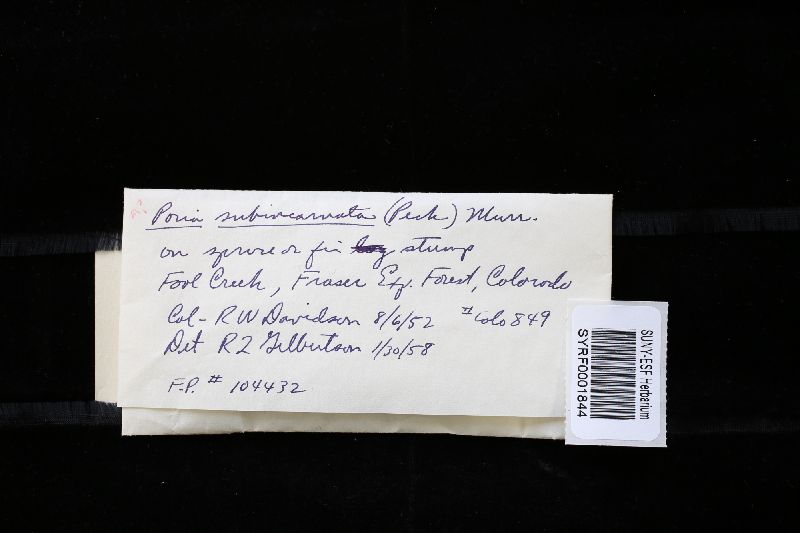 Poria subincarnata (Peck) Murr.
on spruce or fir log stump
Fool Creek, Fraser Exp. Forest, Colorado
Col- RW Davidson 8/6/52 # Colo 849
Det RL Gilbertson 1/30/58
F.P. # 104432
SUNY-ESF Herbarium
SYRF0001844